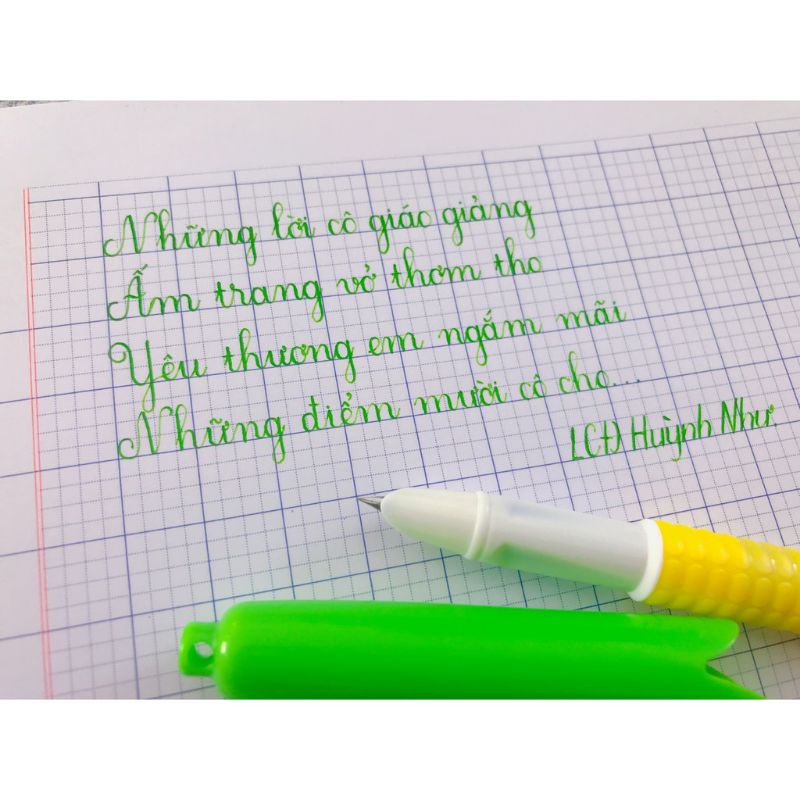 Những lời cô giáo giảng
Ấm trang vở thơm tho
Yêu thương em ngắm mãi
Những điểm mười cô cho...
L(t) Huỳnh Như